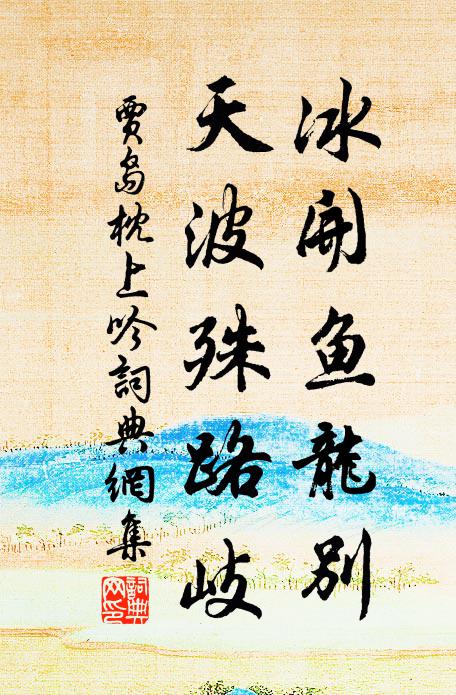 冰開魚龍別
天波殊路岐
賈島枕上吟詞典網集
詞典網印